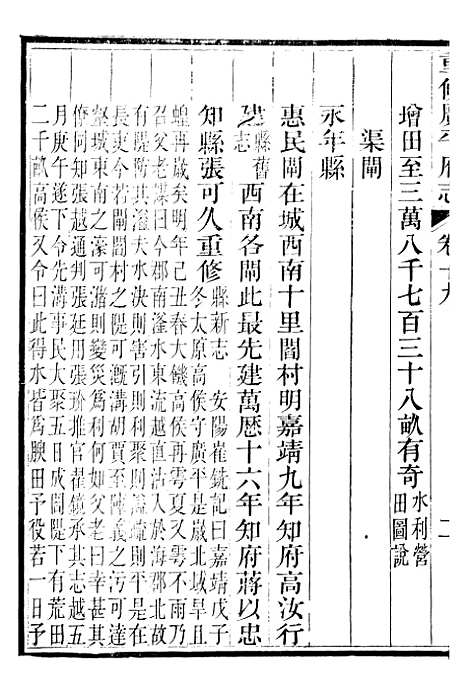 重修廣平府志 卷十九 二
增田至三萬八千七百三十八畝有奇水利營
田圖說
渠閘
永年縣
惠民閘在城西南十里閻村明嘉靖九年知府高汝行
建縣舊
志西南各閘此最先建萬歷十六年知府蔣以忠
知縣張可久重修縣新志 安陽崔銑記曰嘉靖戊子
冬太原高侯守廣平是歲北城旱且
蝗再歲矣明年己丑春大饑高侯再雩夏又雩不雨乃
召父老謀曰今郡南滏水東流越直沽入於海郡北故
有隄防其溢夫水決則害引則利聚則溢疏則平是在
長吏今若開閻村之隄可漑溝胡賈至陳義之汚可達
壑城東南之濠可瀦則變災為利何如父老曰幸甚其
僚同知張越通判張廷用張玠推官翟鏡承其志歲五
月庚午遂下令先溝事民大聚五日成閘隄下有荒田
二千畝高侯又令曰此得水皆為腴田予役若一日予